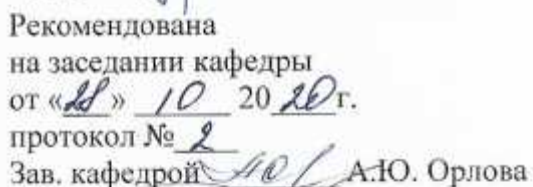 Рекомендована
на заседании кафедры
от «28» 10 2020г.
протокол № 2
Зав. кафедрой А.Ю. Орлова